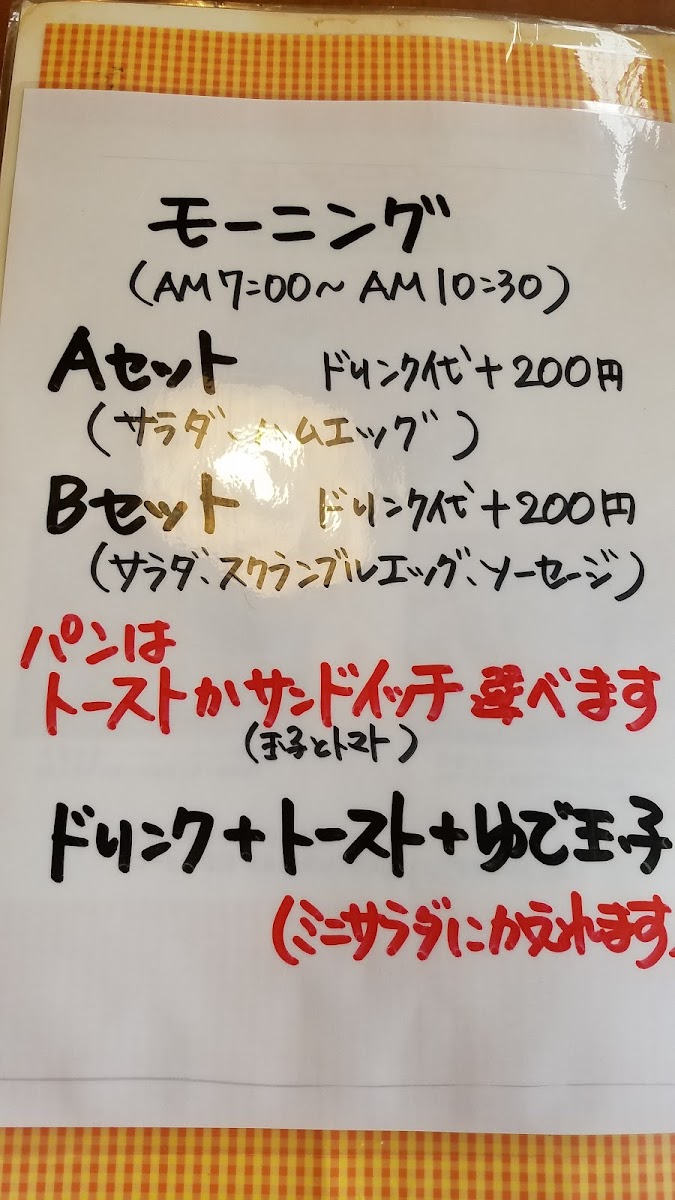 モーニング
(AM7:00〜AM10:30)
Aセット ドリンク代+200円
(サラダ、ハムエッグ)
Bセット ドリンク代+200円
(サラダ、スクランブルエッグ、ソーセージ)
パンは
トーストかサンドイッチ選べます
(玉子とトマト)
ドリンク+トースト+ゆで玉子
(ミニサラダにかえれます